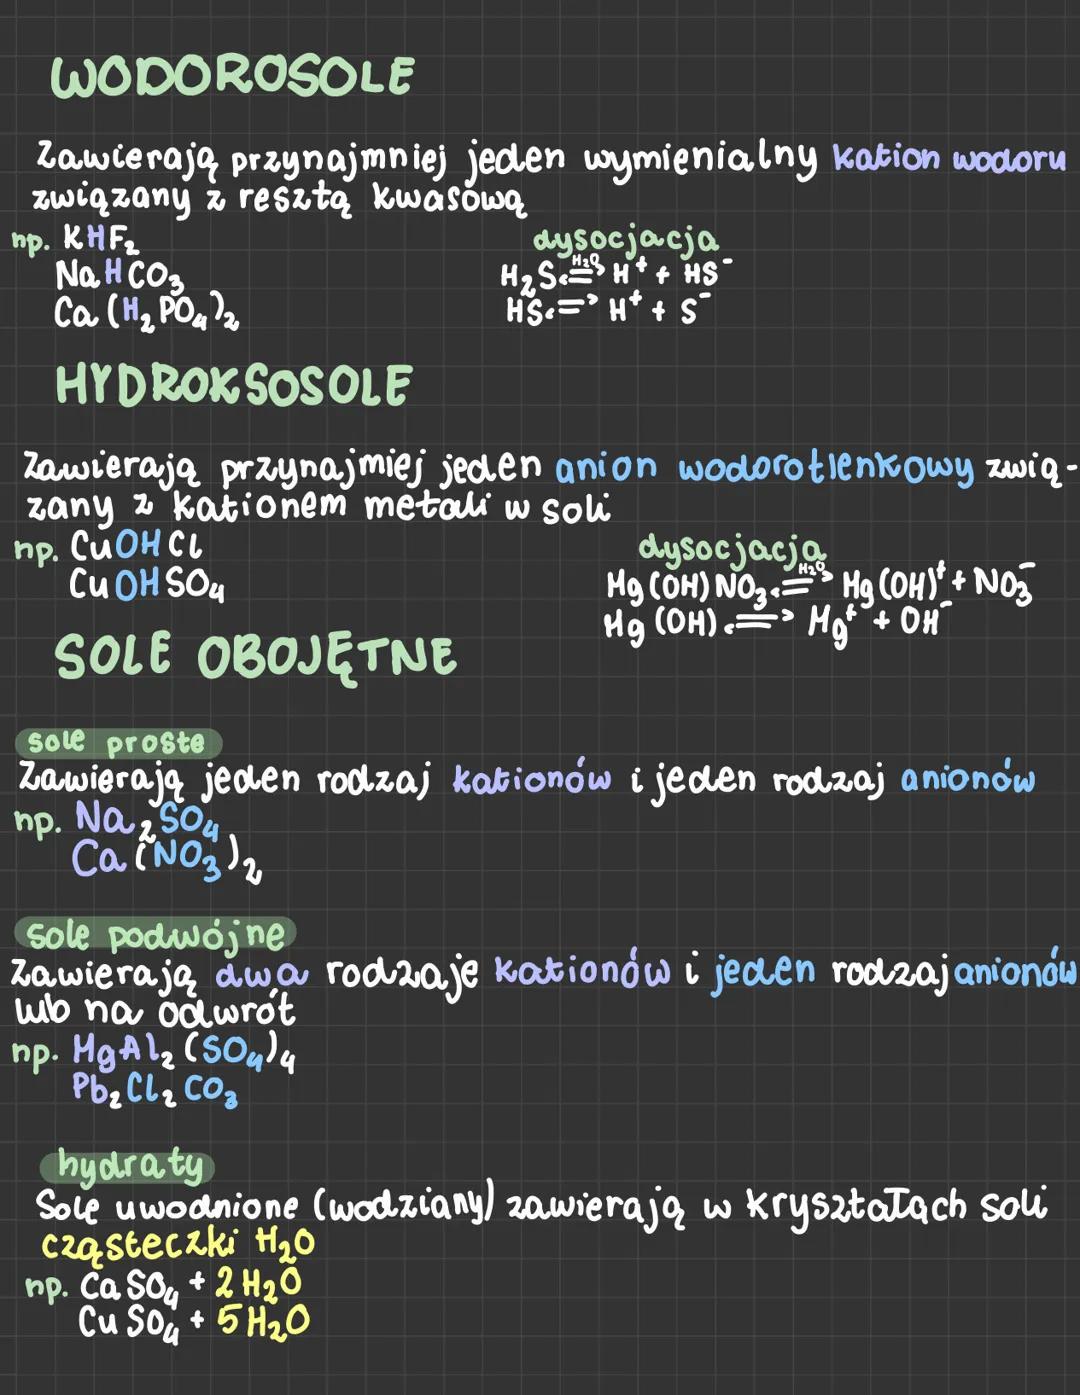 WODOROSOLE
Zawierają przynajmniej jeden wymienialny kation wodoru
związany z resztą kwasową
np. KHF₂
NaHCO₃
Ca(H₂PO₄)₂
dysocjacja
H₂S ⇌ H₂O H⁺ + HS⁻
HS ⇌ H⁺ + S⁻
HYDROKSOSOLE
Zawierają przynajmiej jeden anion wodorotlenkowy zwią-
zany z kationem metali w soli
np. CuOHCl
CuOHSO₄
dysocjacja
Mg(OH)NO₃ ⇌ H₂O Mg(OH)⁺ + NO₃⁻
Mg(OH) ⇌ Mg⁺ + OH⁻
SOLE OBOJĘTNE
sole proste
Zawierają jeden rodzaj kationów i jeden rodzaj anionów
np. Na₂SO₄
Ca(NO₃)₂
sole podwójne
Zawierają dwa rodzaje kationów i jeden rodzaj anionów
lub na odwrót
np. MgAl₂(SO₄)₄
Pb₂Cl₂CO₃
hydraty
Sole uwodnione (wodziany) zawierają w kryształach soli
cząsteczki H₂O
np. CaSO₄ + 2H₂O
CuSO₄ + 5H₂O